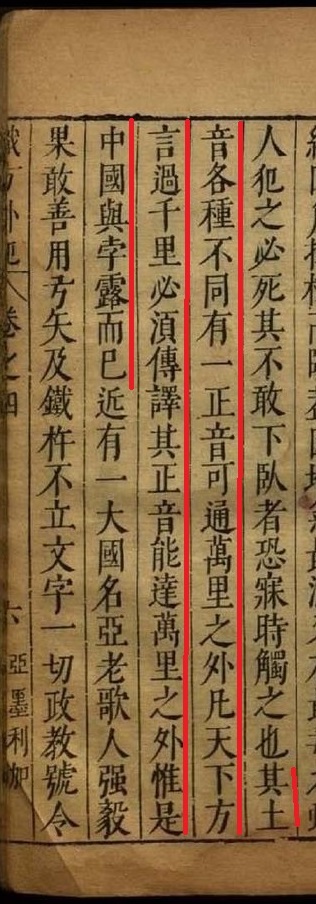 人犯之必死其不敢下臥者恐寐時觸之也其土
音各種不同有一正音可通萬里之外凡天下方
言過千里必湏傳譯其正音能達萬里之外惟是
中國與孛露而已近有一大國名亞老歌人强毅
果敢善用弓矢及鐵杵不立文字一切政教號令
職方外紀 卷之四 六 亞墨利加